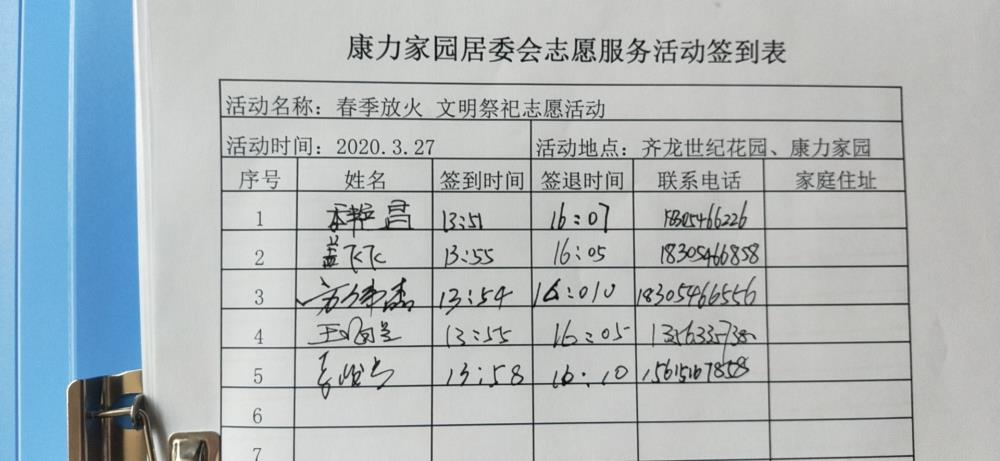 康力家园居委会志愿服务活动签到表
活动名称：春季放火 文明祭祀志愿活动
活动时间：2020.3.27 活动地点：齐龙世纪花园、康力家园
序号 姓名 签到时间 签退时间 联系电话 家庭住址
1 13:51 16:07 18305466226
2 盖飞飞 13:55 16:05 18305466858
3 13:54 16:010 18305466556
4 13:55 16:05
5 13:58 16:10 15615167858
6
7